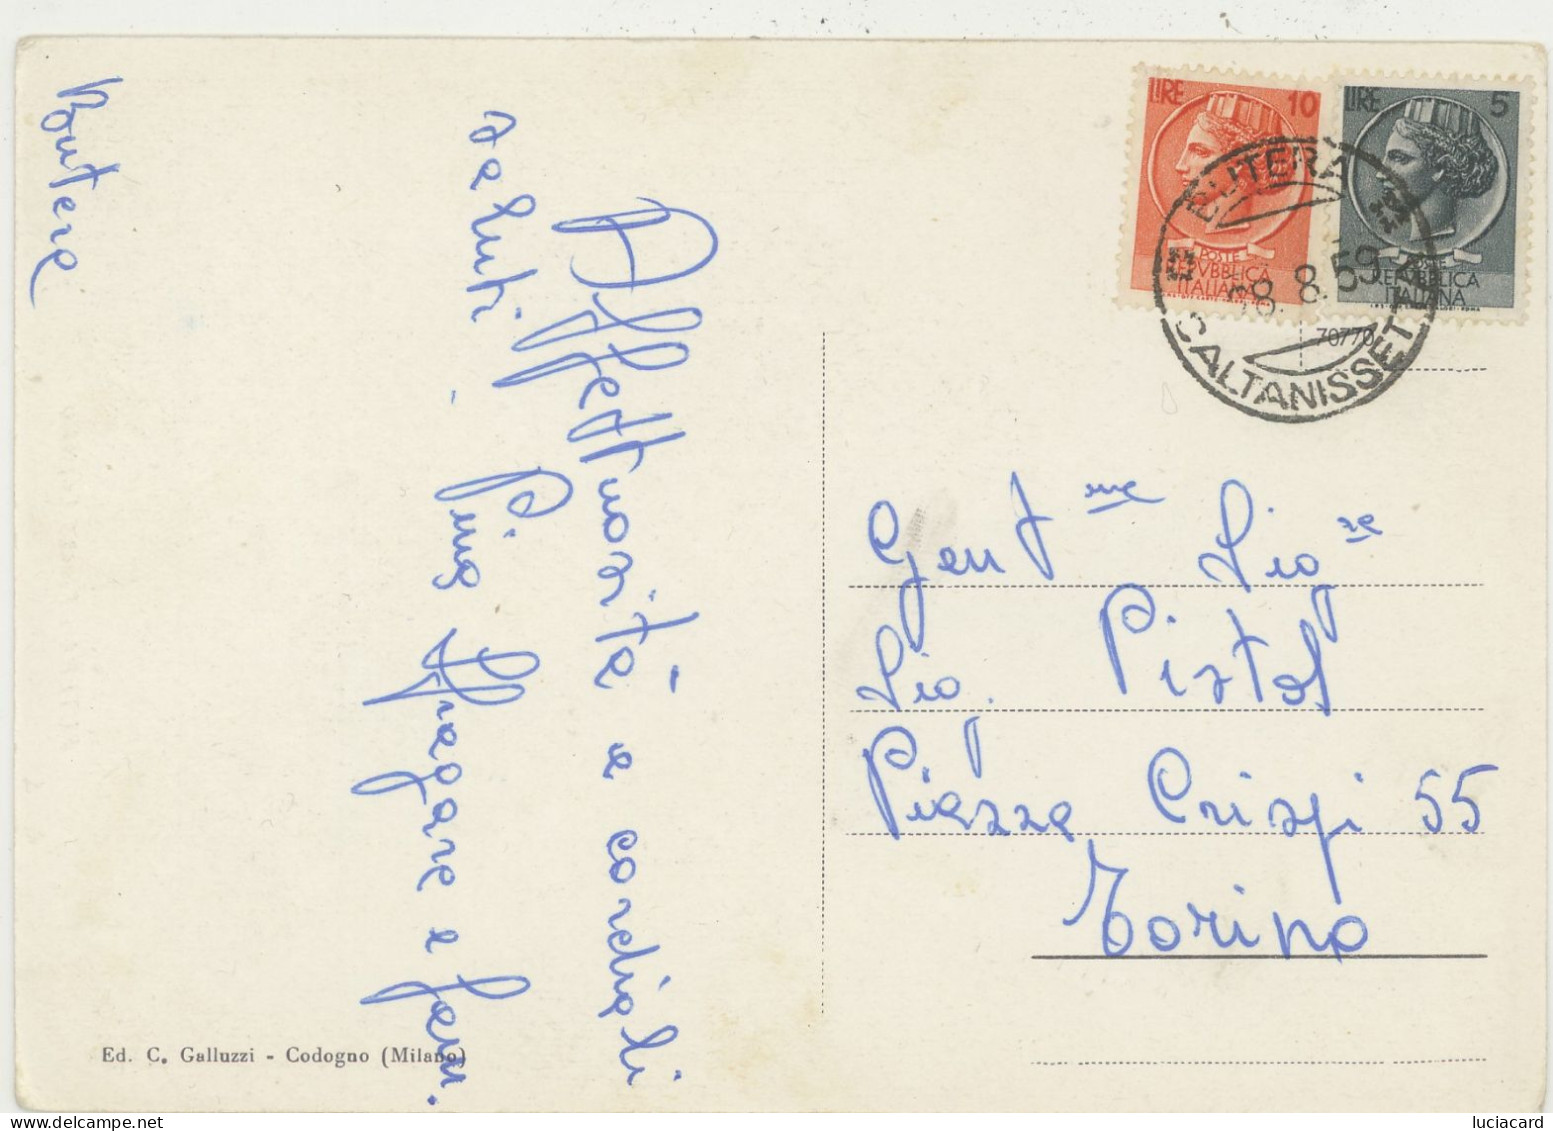 Butera
Affettuosità e cordiali
saluti.
Pino e fam.
LIRE 10
POSTE
REPVBBLICA
ITALIANA
LIRE 5
POSTE
REPVBBLICA
ITALIANA
BUTERA
8.8.59
CALTANISSETTA
70770
Gent.me Sig.re
Sig. Pistol
Piazza Crispi 55
Torino
Ed. C. Galluzzi - Codogno (Milano)
luciacard